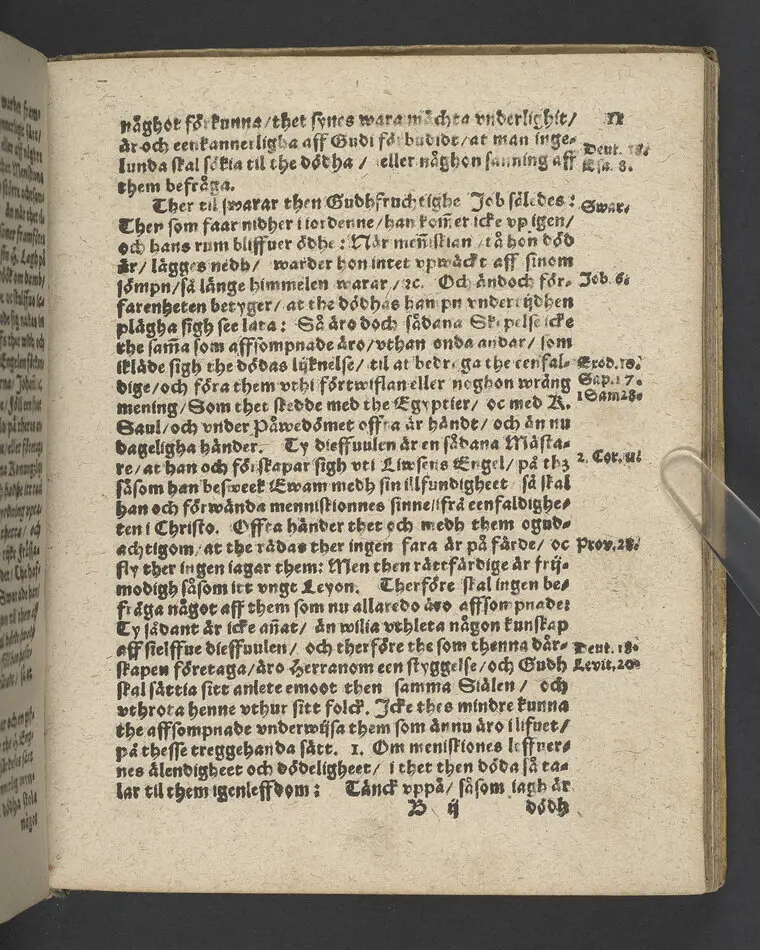 11
någhot förkunna/thet synes wara mächta vnderlighit/
är och een kannerligha aff Gudi förbudidt/at man inge-
lunda skal sökia til the dödha / eller någhon sanning aff
them befråga.
Deut. 18.
Esa. 8.
Ther til swarar then Gudhfruchtighe Job således:
Swar.
Then som faar nidher i iordenne/han kom̃er icke vp igen/
och hans rum bliffuer ödhe: När men̄iskian / tå hon död
är/ lägges nedh/ warder hon intet vpwäckt aff sinom
sömpn/så länge himmelen warar/ꝛc. Och ändoch för-
Job. 6.
farenheten betyger/at the dödhas hampn vnderstijdhen
plägha sigh see lata: Så äro doch sådana Skepelse icke
the sam̃a som affsompnade äro/vthan onda andar/ som
ikläde sigh the dödas lijknelse/ til at bedraga the eenfal-
Exod. 18.
dige/och föra them vthi förtwiflan eller noghon wrång
Sap. 17.
mening/Som thet skedde med the Egyptier/ oc med K.
1 Sam 28.
Saul/och vnder Påwedömet offta är händt/ och än nu
dageligha händer. Ty dieffuulen är en sådana Mästa-
re/at han och förskapar sigh vti Liwsens Engel/ på thz
2. Cor. 11.
såsom han besweek Ewam medh sin illfundigheet så skal
han och förwända menniskionnes sinne/ifrå eenfaldighe-
ten i Christo. Offta händer thet och medh them ogud-
achtigom/at the rädas ther ingen fara är på färde/ oc
Prov. 28.
fly ther ingen iagar them: Men then rättfärdige är frij-
modigh såsom itt vngt Leyon. Therföre skal ingen be-
fråga något aff them som nu allaredo äro affsompnade:
Ty sådant är icke an̄at/ än wilia vthleta någon kunskap
aff sielffue dieffuulen/ och therföre the som thenna dår-
Deut. 18.
skapen företaga/äro Herranom een styggelse/och Gudh
Levit. 20.
skal sättia sitt anlete emoot then samma Siälen/ och
vthrota henne vthur sitt folck. Icke thes mindre kunna
the affsompnade vnderwijsa them som ännu äro i lifuet/
på thesse treggehanda sätt. 1. Om meniskiones leffver-
nes älendigheet och dödeligheet/ i thet then döda så ta-
lar til them igenleffdom: Tänck vppå/ såsom iagh är
B ij dödh